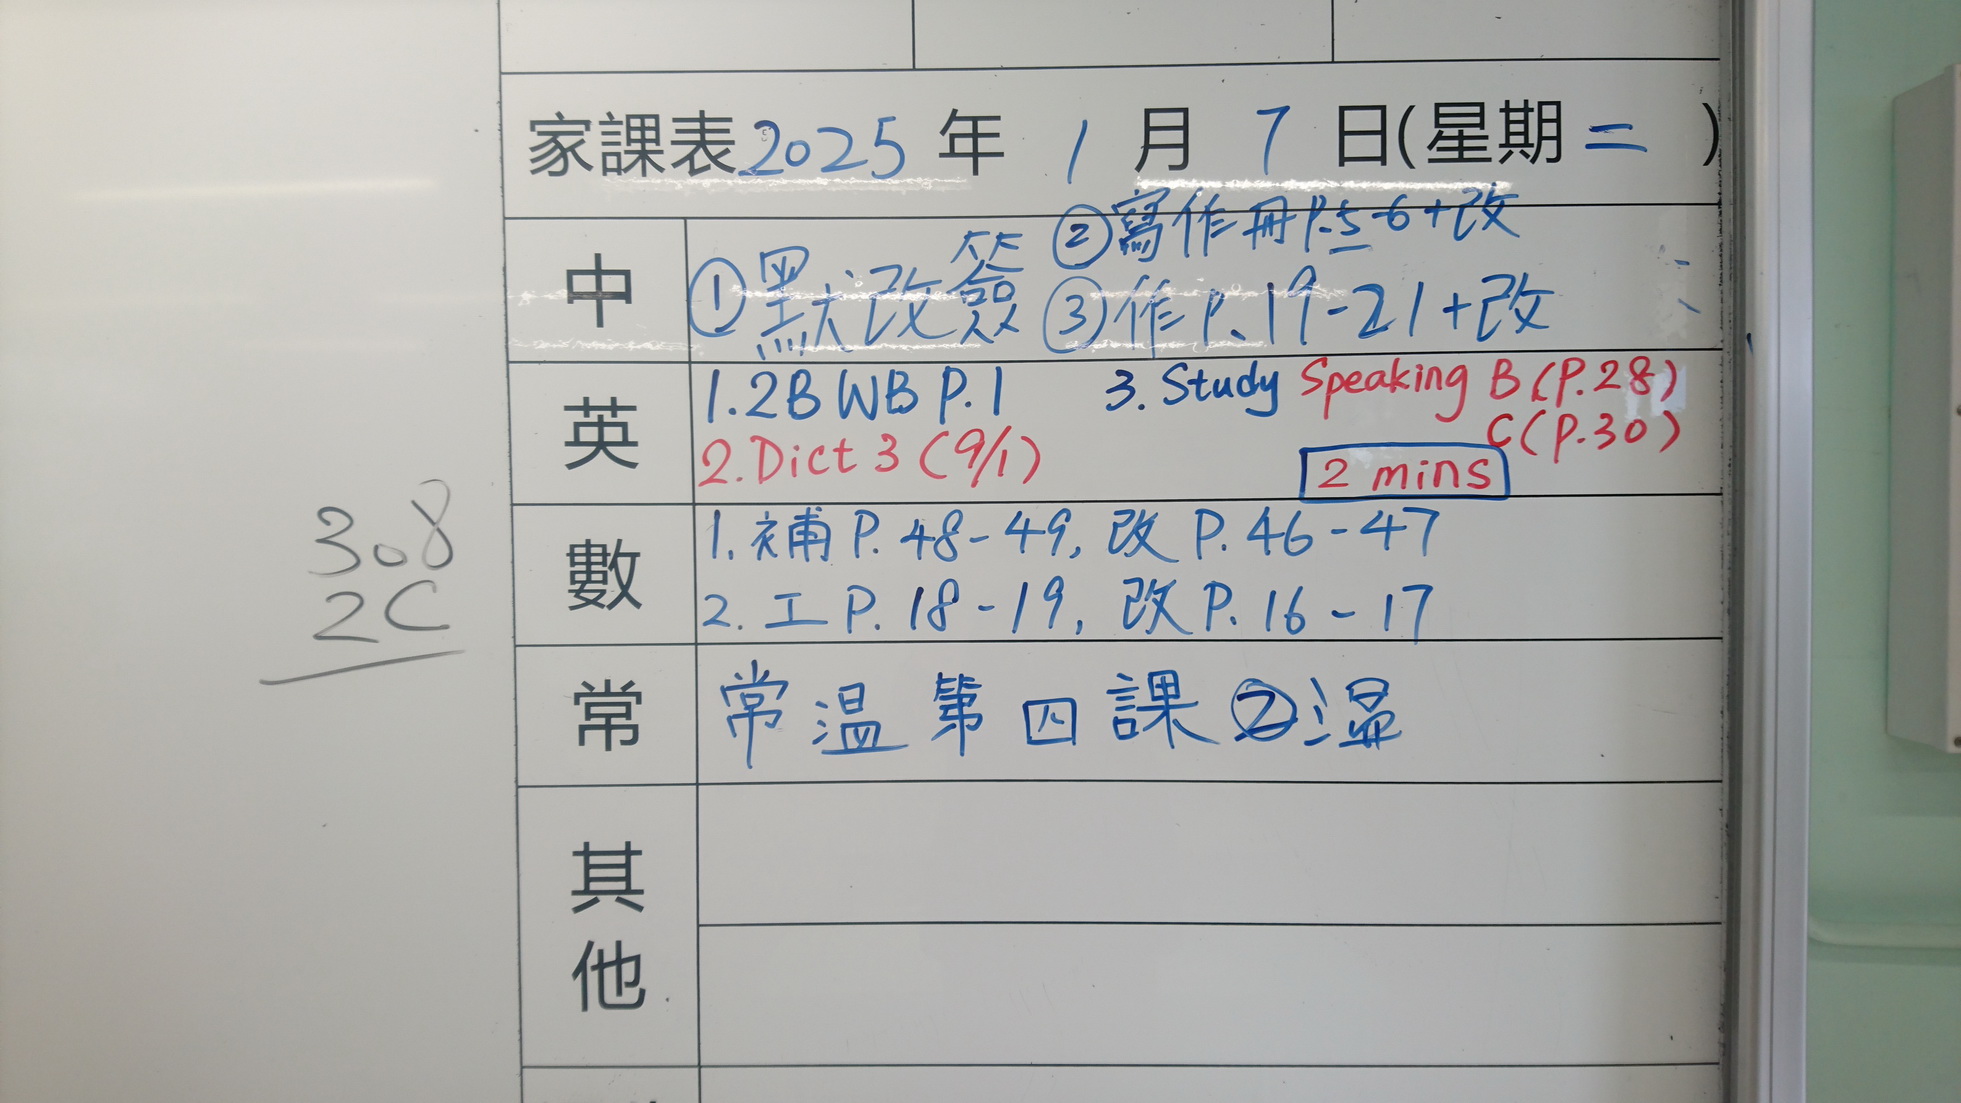 家課表2025年1月7日(星期二)
中
②寫作冊P.5-6+改
①默改簽 ③作P.19-21+改
英
1.2B WB P.1 3. Study Speaking B (P.28)
2.Dict 3 (9/1) C (P.30)
2 mins
數
1. 補P.48-49, 改P.46-47
2. 工P.18-19, 改P.16-17
常
常溫第四課②溫
其他
308
2C